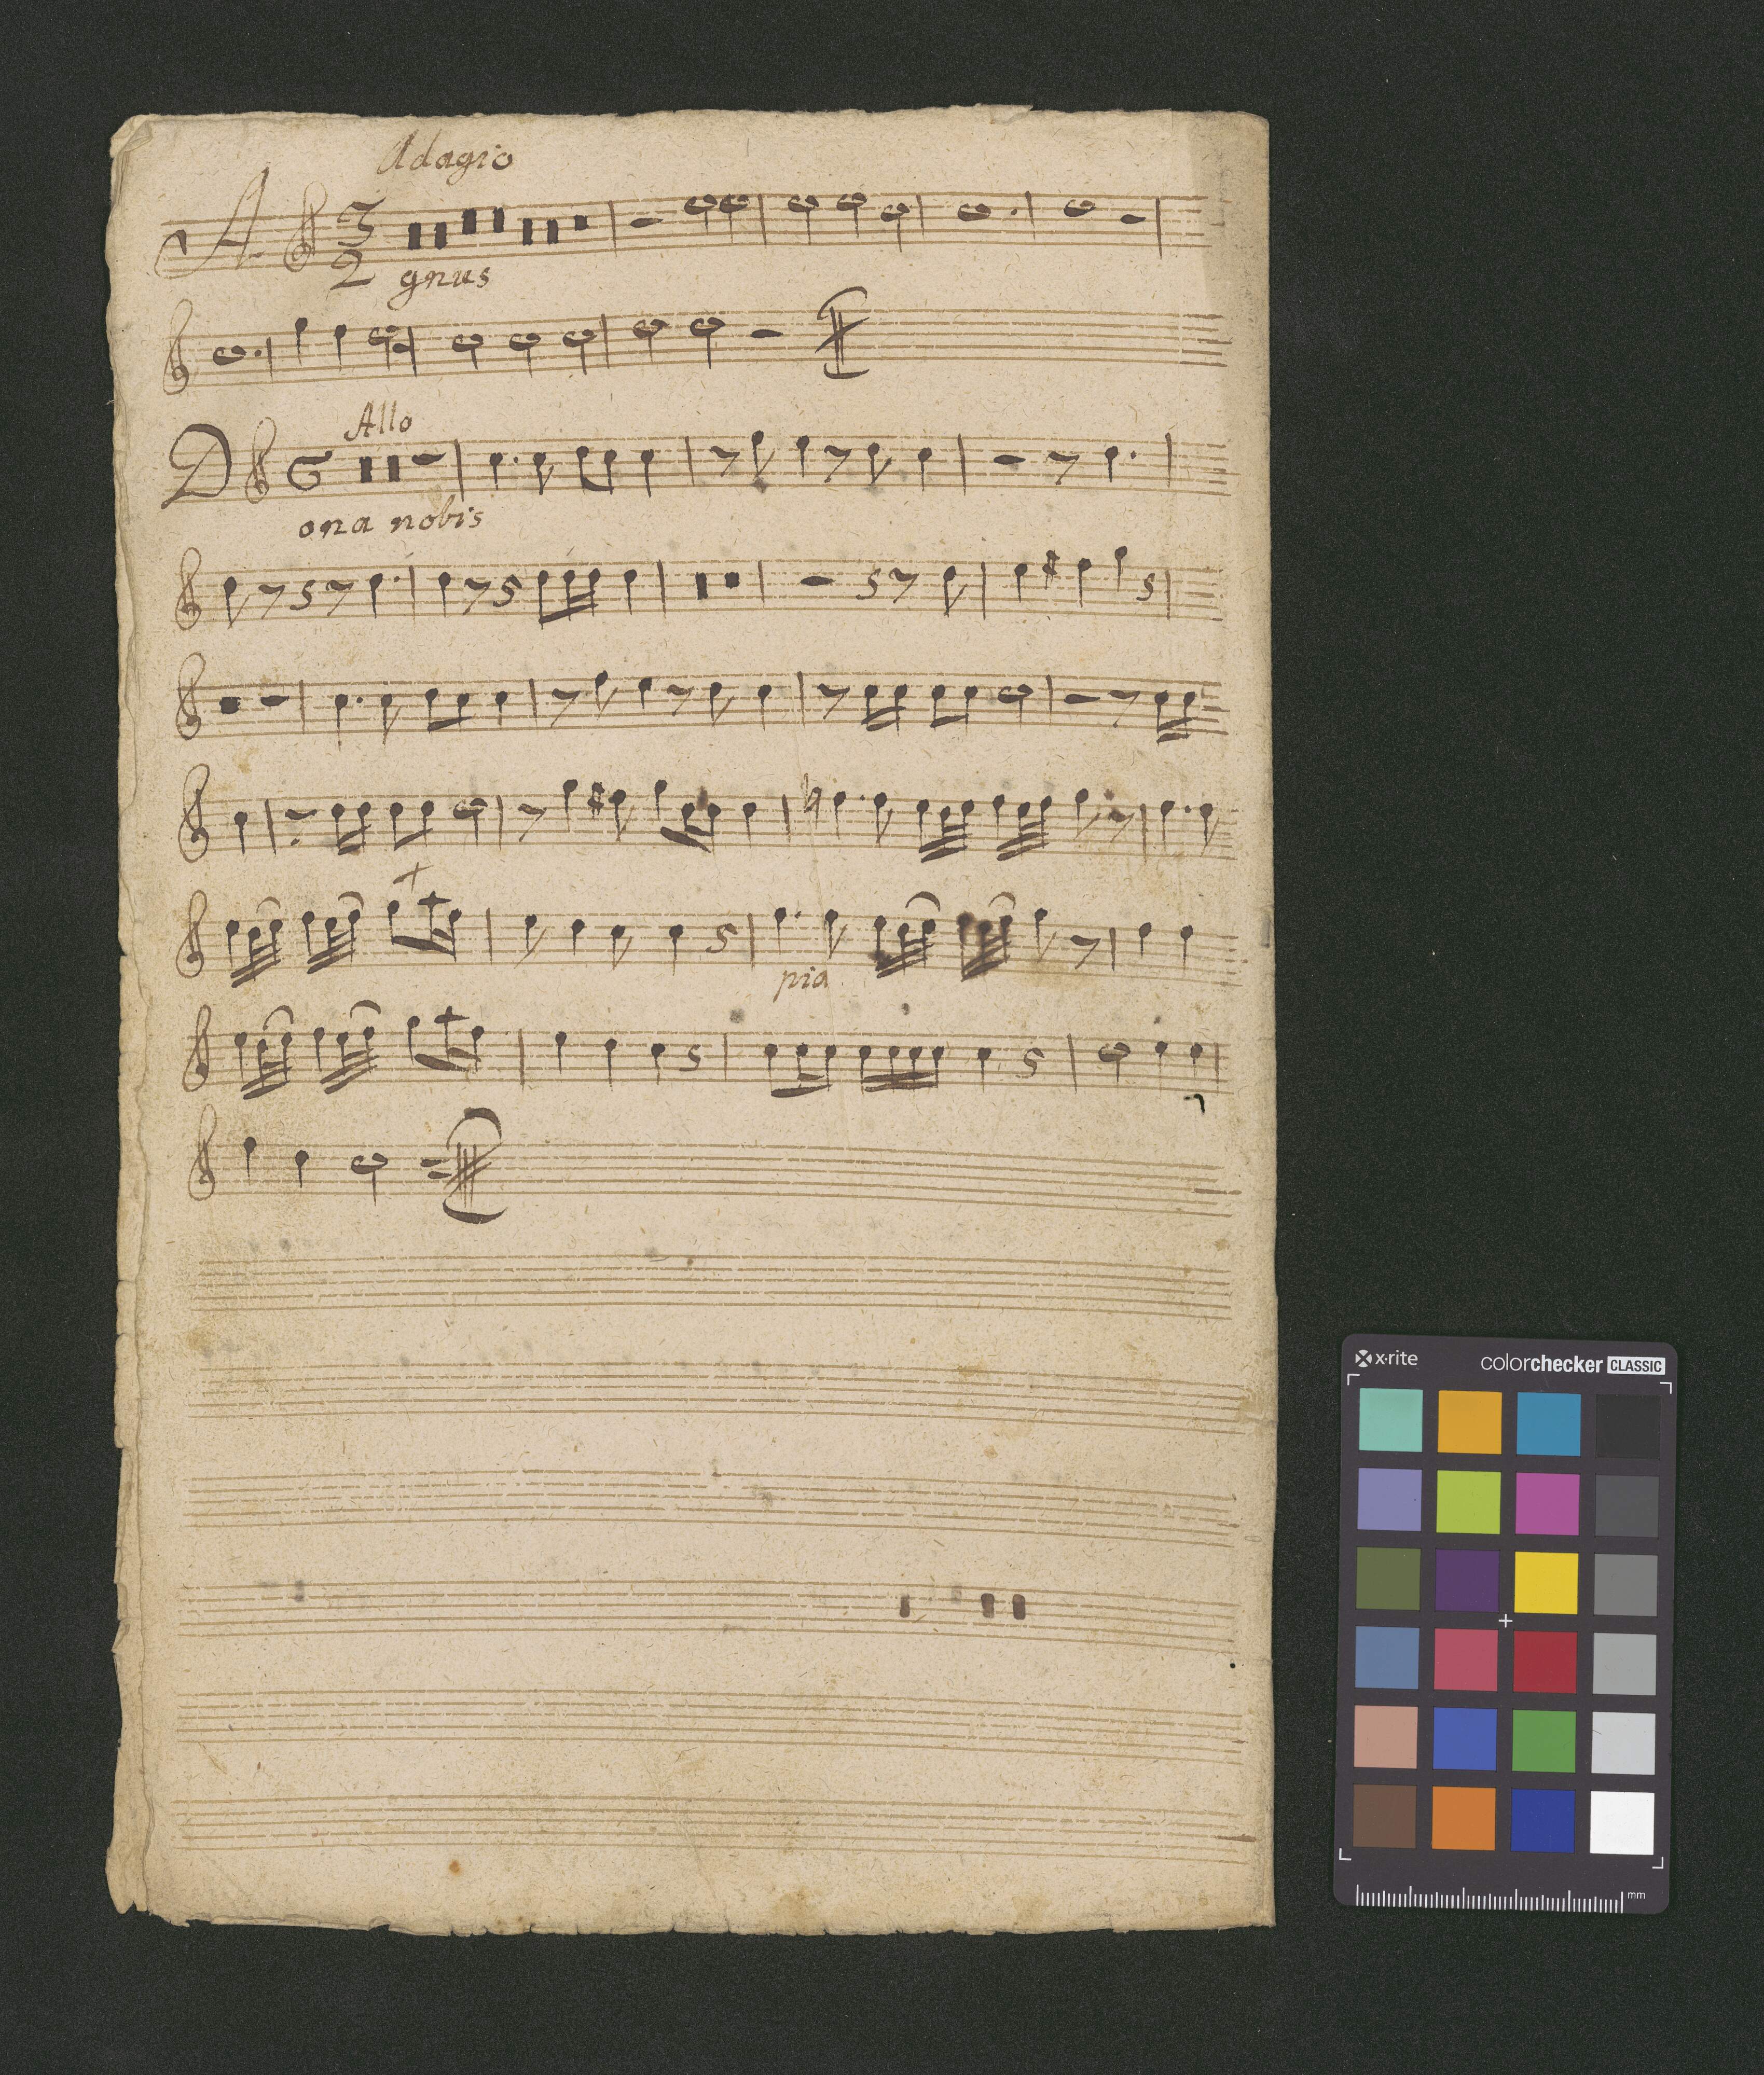 Adagio
A
3
2
gnus
Allo
D
ona nobis
pia
x-rite
colorchecker CLASSIC
mm